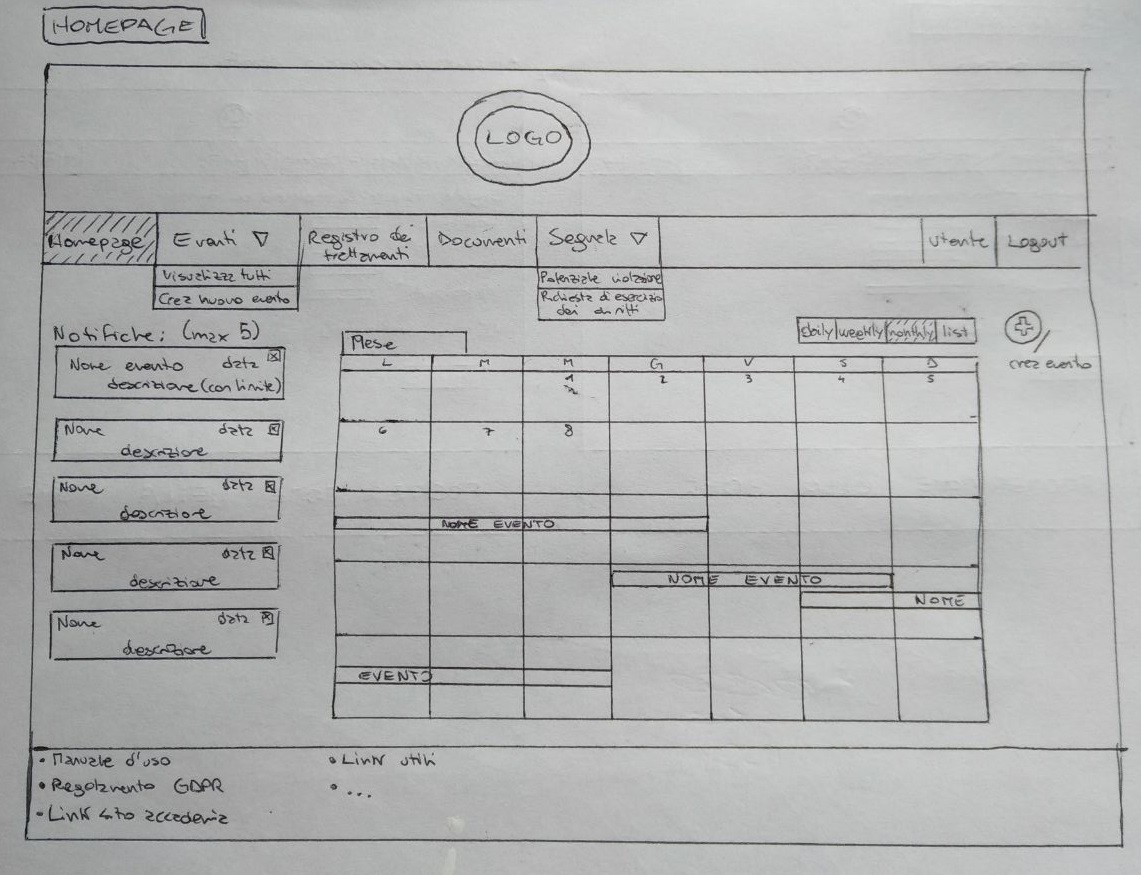 HOMEPAGE
LOGO
Homepage
Eventi
Registro dei
trattamenti
Documenti
Segnala
Utente
Logout
Visualizza tutti
Crea nuovo evento
Potenziale violazione
Richiesta d'esercizio
dei diritti
Notifiche: (max 5)
Nome evento data
descrizione (con limite)
Nome data
descrizione
Nome data
descrizione
Nome data
descrizione
Nome data
descrizione
Mese
daily weekly monthly list
+
crea evento
L M M G V S D
1 2 3 4 5
6 7 8
NOME EVENTO
NOME EVENTO
NOME
EVENTO
• Manuale d'uso
• Regolamento GDPR
• Link sito accademia
• Link utili
• ...